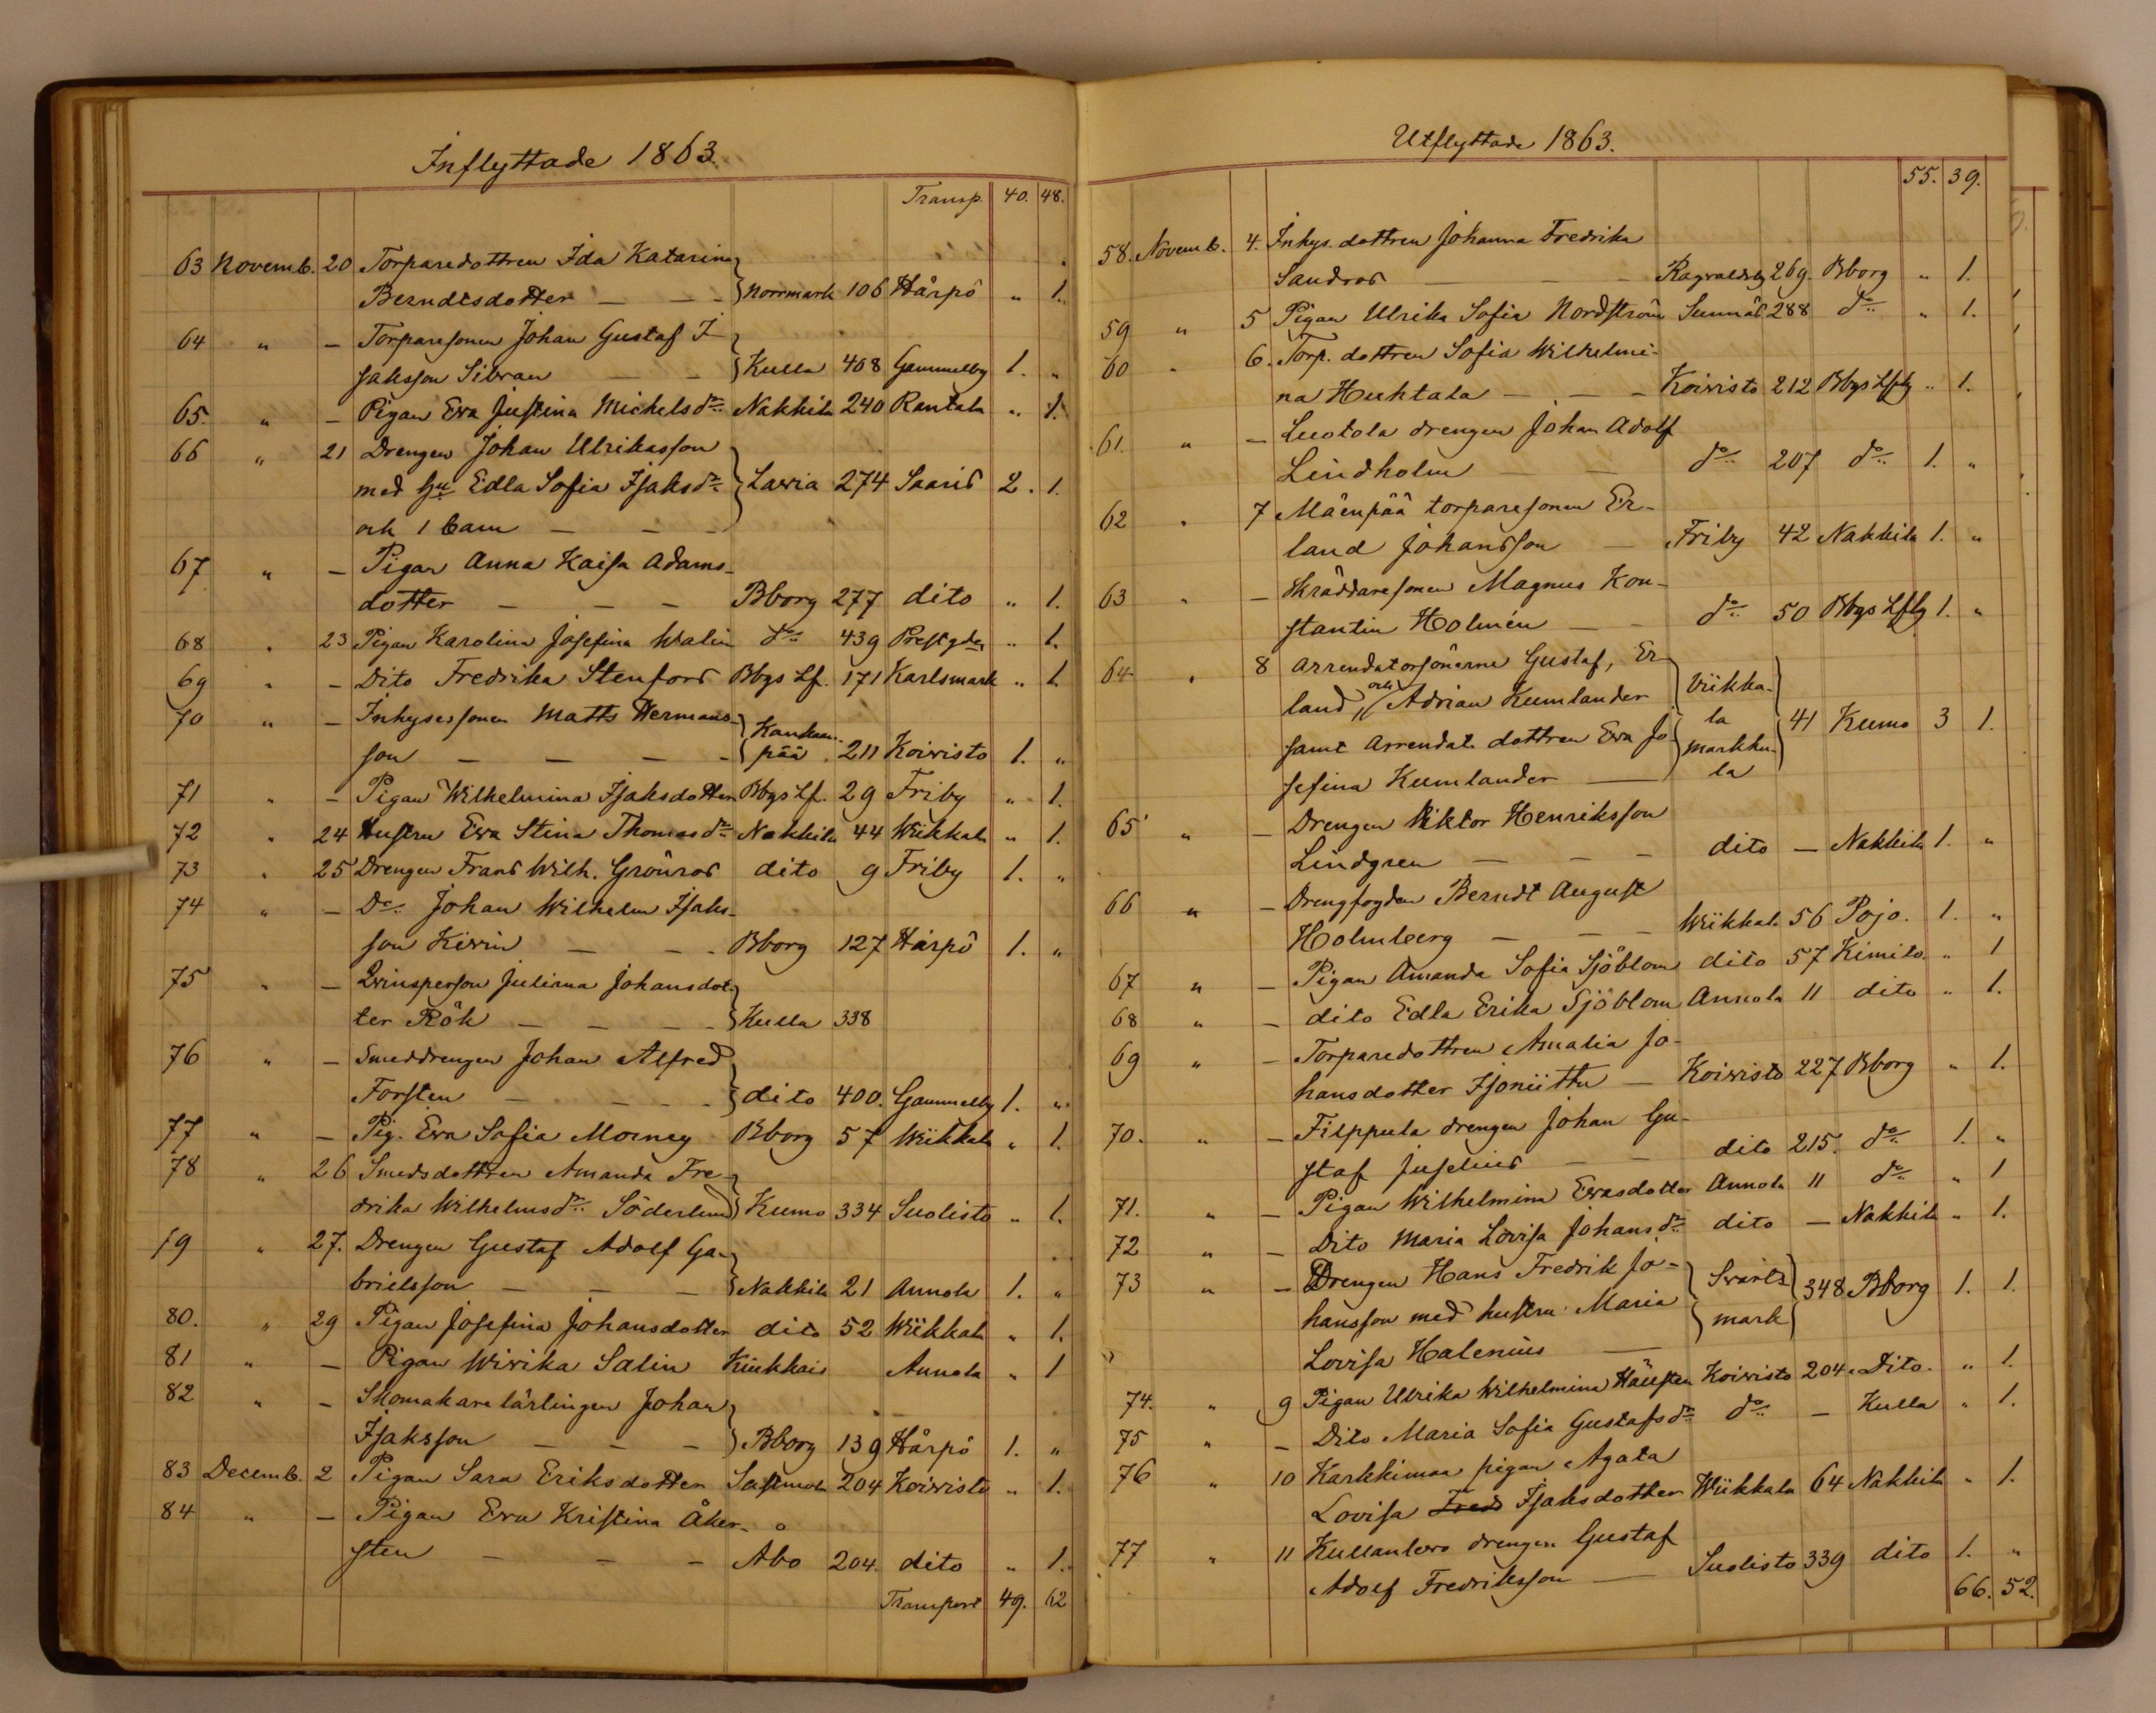 Inflyttade 1863.
Transp. 40. 48.
63 Novemb. 20 Torparedottren Ida Katarina
Berndtsdotter — — Norrmark 106 Hårpö " 1.
64 " — Torparesonen Johan Gustaf I-
saksson Sibran — — Kulla 408 Gammelby 1. "
65. " — Pigan Eva Justina Michelsdr. Nakkila 240 Rantala " 1.
66 " 21 Drengen Johan Ulriksson
med hu Edla Sofia Isaksdr. Lavia 274 Saaris 2. 1.
och 1 barn — — —
67 " — Pigan Anna Kaisa Adams-
dotter — — — Bborg 277 dito " 1.
68 " 23 Pigan Karolina Josefina Walin do 439 Prestgden " 1.
69 " — Dito Fredrika Stenfors Bbgs Lf. 171 Karlsmark " 1.
70 " — Inhysessonen Matts Hermans-
son — — — Kankaan-pää 211 Koivisto 1. "
71 " — Pigan Wilhelmina Isaksdotter Bbgs Lf. 29 Friby " 1.
72 " 24 Hustru Eva Stina Thomasdr. Nakkila 44 Wiikkala " 1.
73 " 25 Drengen Frans Wilh. Grönros dito 9 Friby 1. "
74 " — Do Johan Wilhelm Isaks-
son Kivin — — Bborg 127 Hårpö 1. "
75 " — Qvinsperson Juliana Johansdot-
ter Rök — — — Kulla 338
76 " — Smeddrengen Johan Alfred
Forsten — — — dito 400. Gammelby 1. "
77 " — Pig. Eva Sofia Morney Bborg 57 Wiikkala " 1.
78 " 26 Smedsdottren Amanda Fre-
drika Wilhelmsdr. Söderlund Kumo 334 Suolisto " 1.
79 " 27. Drengen Gustaf Adolf Ga-
brielsson — — — Nakkila 21 Annola 1. "
80. " 29 Pigan Josefina Johansdotter dito 52 Wiikkala " 1.
81 " — Pigan Wivika Salin Kiukkais Annola " 1
82 " — Skomakare lärlingen Johan
Isaksson — — — Bborg 139 Hårpö 1. "
83 Decemb. 2 Pigan Sara Eriksdotter Sastmola 204 Koivisto " 1.
84 " — Pigan Eva Kristina Åker-
sten — — — Åbo 204. dito " 1.
Transport 49. 62
Utflyttade 1863.
55. 39.
58. Novemb. 4. Inhys. dottren Johanna Fredrika
Sandros — — Ragvaldsby 269. Bborg " 1.
59 " 5 Pigan Ulrika Sofia Nordström Sunnäs 288 do " 1.
60 " 6. Torp. dottren Sofia Wilhelmi-
na Huhtala — — — Koivisto 212 Bbgs Lfsg " 1.
61. " — Luotola drengen Johan Adolf
Lindholm — — do 207 do 1. "
62 " 7 Mäenpää torparesonen Er-
land Johansson — Friby 42 Nakkila 1. "
63 " — Skräddaresonen Magnus Kon-
stantin Holmén — — do 50 Bbgs Lfsg 1. "
64 " 8 Arrendatorsönerne Gustaf, Er-
land, och Adrian Kumlander Viikka-
samt Arrendat. dottren Eva Jo- la markku- 41 Kumo 3 1.
sefina Kumlander — la
65 " — Drengen Viktor Henriksson
Lindgren — — — dito — Nakkila 1. "
66 " — Drengfogden Berndt August
Holmberg — — — Wiikkala 56 Pojo. 1. "
67 " — Pigan Amanda Sofia Sjöblom dito 57 Kimito " 1
68 " — dito Edla Erika Sjöblom Annola 11 dito " 1.
69 " — Torparedottren Amalia Jo-
hansdotter Isoniittu — Koivisto 227 Bborg " 1.
70. " — Filppula drengen Johan Gu-
staf Juselius — — dito 215. do 1. "
71. " — Pigan Wilhelmina Evasdotter Annola 11 do " 1
72 " — Dito Maria Lovisa Johansdr. dito — Nakkila " 1.
73 " — Drengen Hans Fredrik Jo- Svarts
hansson med hustru Maria mark 348 Bborg 1. 1.
Lovisa Halenius —
74. " 9 Pigan Ulrika Wilhelmina Koivisto 204. Dito. " 1.
75 " — Dito Maria Sofia Gustafsdr. do — Kulla " 1.
76 " 10 Karkkimaa pigan Agata
Lovisa Fred Isaksdotter Wiikkala 64 Nakkila " 1.
77 " 11 drengen Gustaf
Adolf Fredriksson — Suolisto 339 dito 1. "
66. 52.